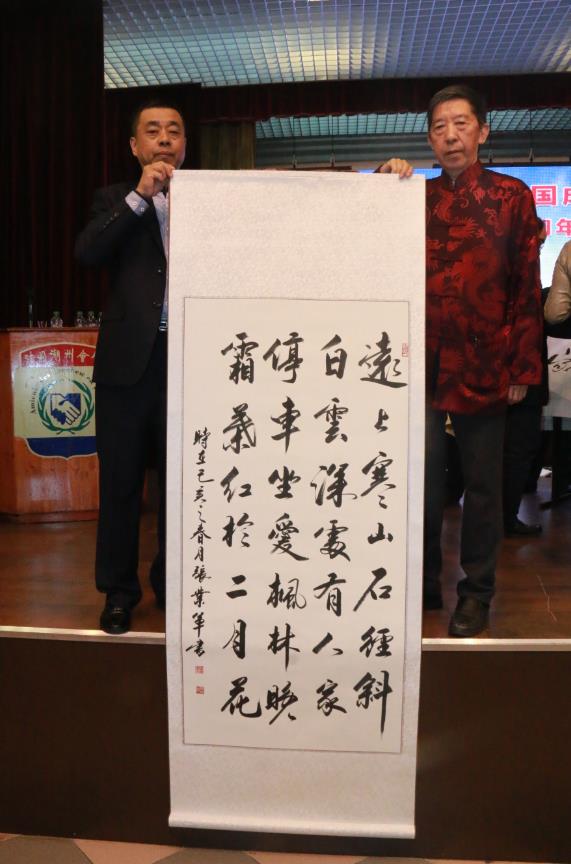 遠上寒山石徑斜
白雲深處有人家
停車坐愛楓林晚
霜葉红於二月花
時在己亥之春月張業軍書
法國潮州會
Amicale
国
周年